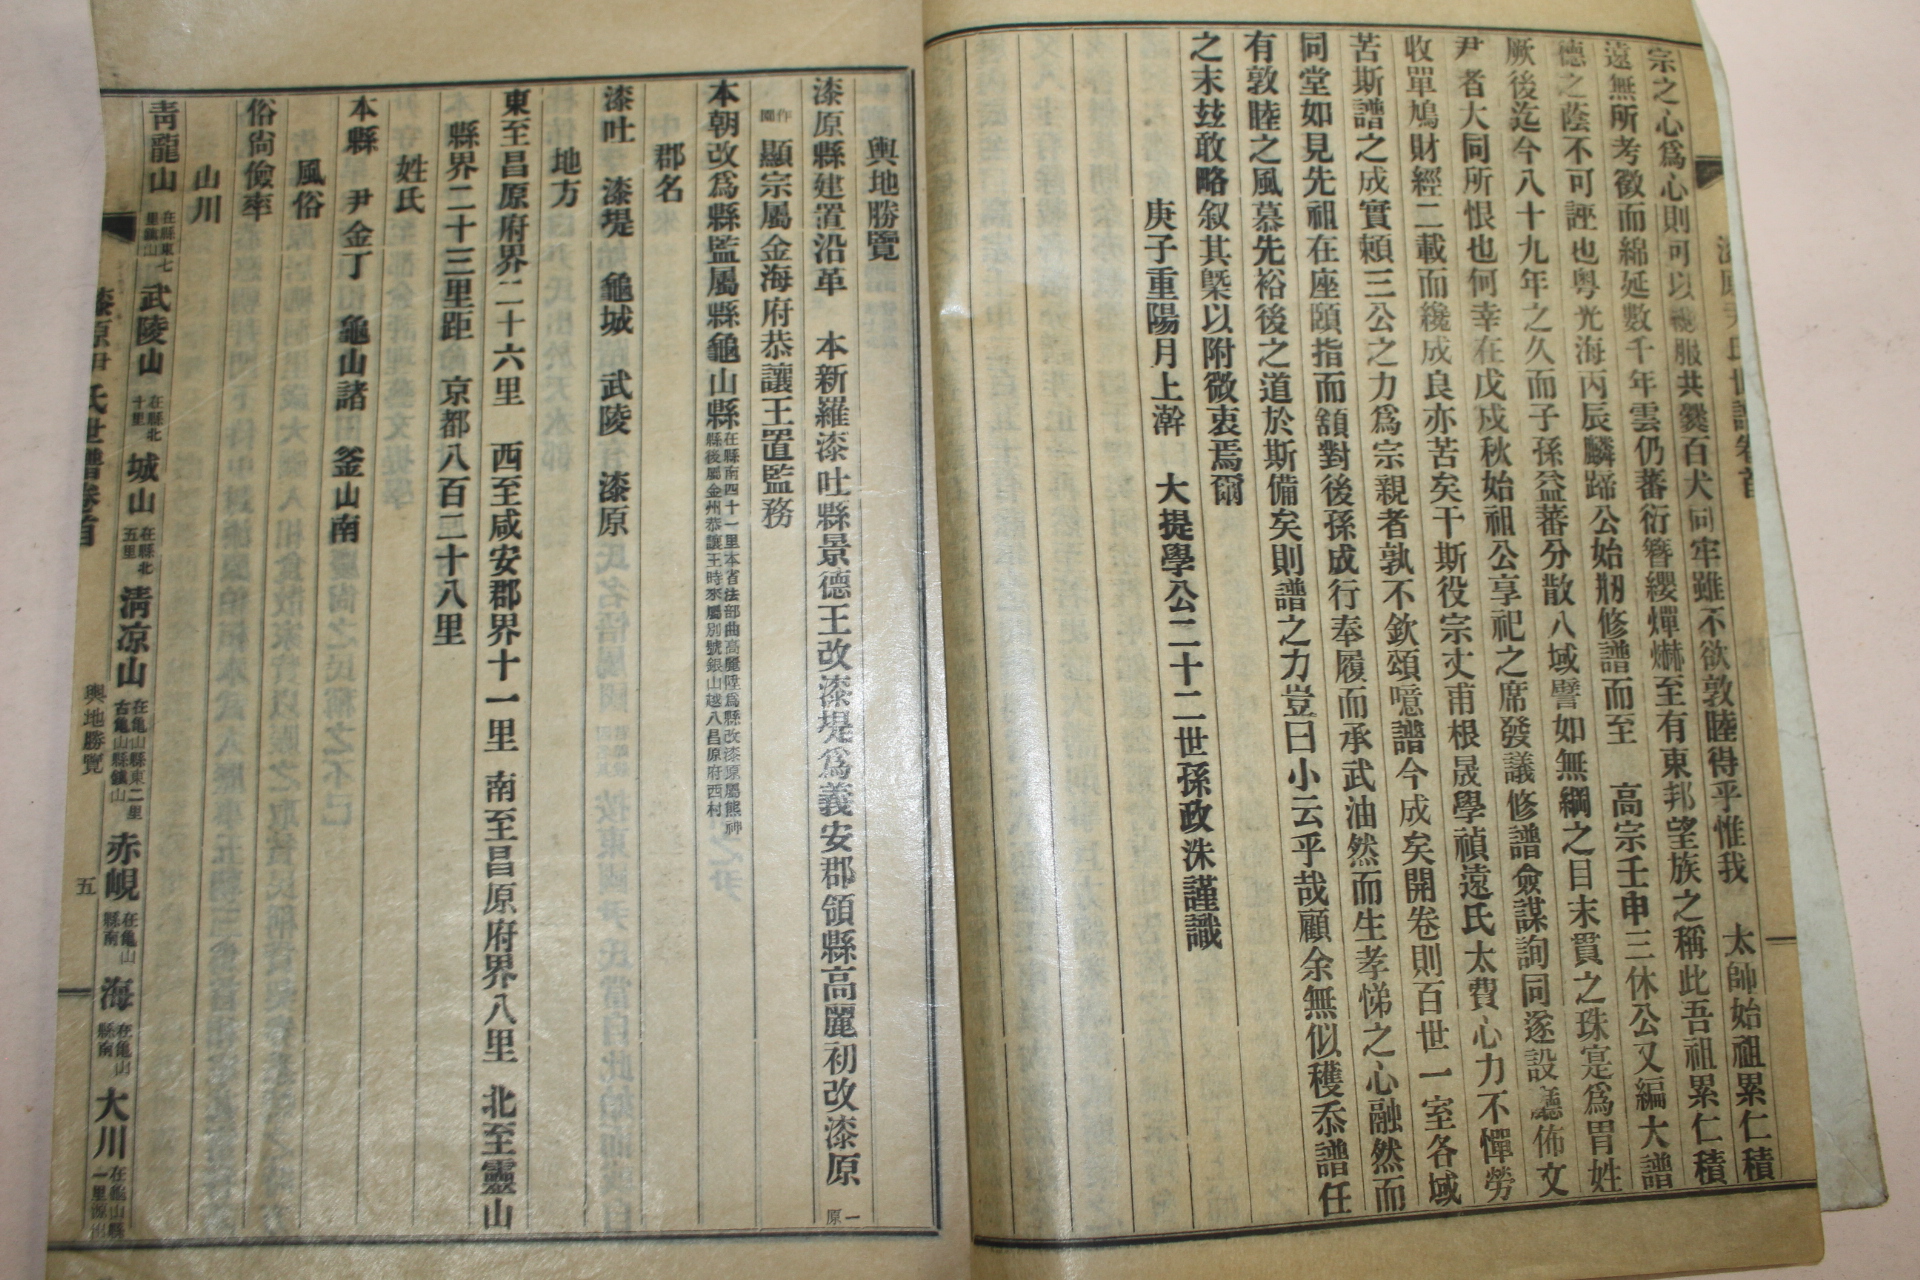 宗之心爲心則可以 服共爨百犬同牢雖不欲敦睦得乎惟我 太師始祖累仁積
德之蔭不可誣也粤光海丙辰麟蹄公始刱修譜而至 高宗壬申三休公又編大譜
遠無所考徵而綿延數千年雲仍蕃衍簪纓燀爀至有東邦望族之稱此吾祖累仁積
厥後迄今八十九年之久而子孫益蕃分散八域譬如無綱之目末貫之珠寔爲冐姓
尹者大同所恨也何幸在戊戍秋始祖公享祀之席發議修譜僉謀詢同遂設廳佈文
收單鳩財經二載而纔成良亦苦矣干斯役宗丈甫根晟學禎遠氏太費心力不憚勞
苦斯譜之成實賴三公之力爲宗親者孰不欽頌噫譜今成矣開卷則百世一室各域
同堂如見先祖在座頤指而額對後孫成行奉履而承武油然而生孝悌之心融然而
有敦睦之風慕先裕後之道於斯備矣則譜之力豈曰小云乎哉顧余無似穫忝譜任
之末玆敢略叙其槩以附微衷焉爾
庚子重陽月上澣 大提學公二十二世孫政洙謹識
輿地勝覽
漆原縣建置沿革 本新羅漆吐縣景德王改漆堤爲義安郡領縣高麗初改漆原 一原
作園 顯宗屬金海府恭讓王置監務
本朝改爲縣監屬縣龜山縣 在縣南四十一里本省法部曲高麗陞爲縣改漆原屬熊神
縣後屬金州恭讓王時來屬別號銀山越八昌原府西村
郡名
漆吐 漆堤 龜城 武陵 漆原
地方
東至昌原府界二十六里 西至咸安郡界十一里 南至昌原府界八里 北至靈山
縣界二十三里距 京都八百三十八里
姓氏
本縣 尹金丁 龜山諸 釜山南
風俗
俗尙儉率
山川
靑龍山 在縣東七里鎭山 武陵山 在縣北十里 城山 在縣北五里 淸凉山 在亀山縣東二里古亀山縣鎭山 赤峴 在亀山縣南 海 在亀山縣南 大川 在龜山縣一里源出
漆原尹氏世譜卷首 輿地勝覽 五